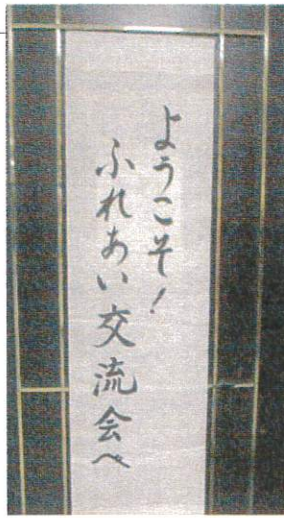 ようこそ!
ふれあい交流会へ